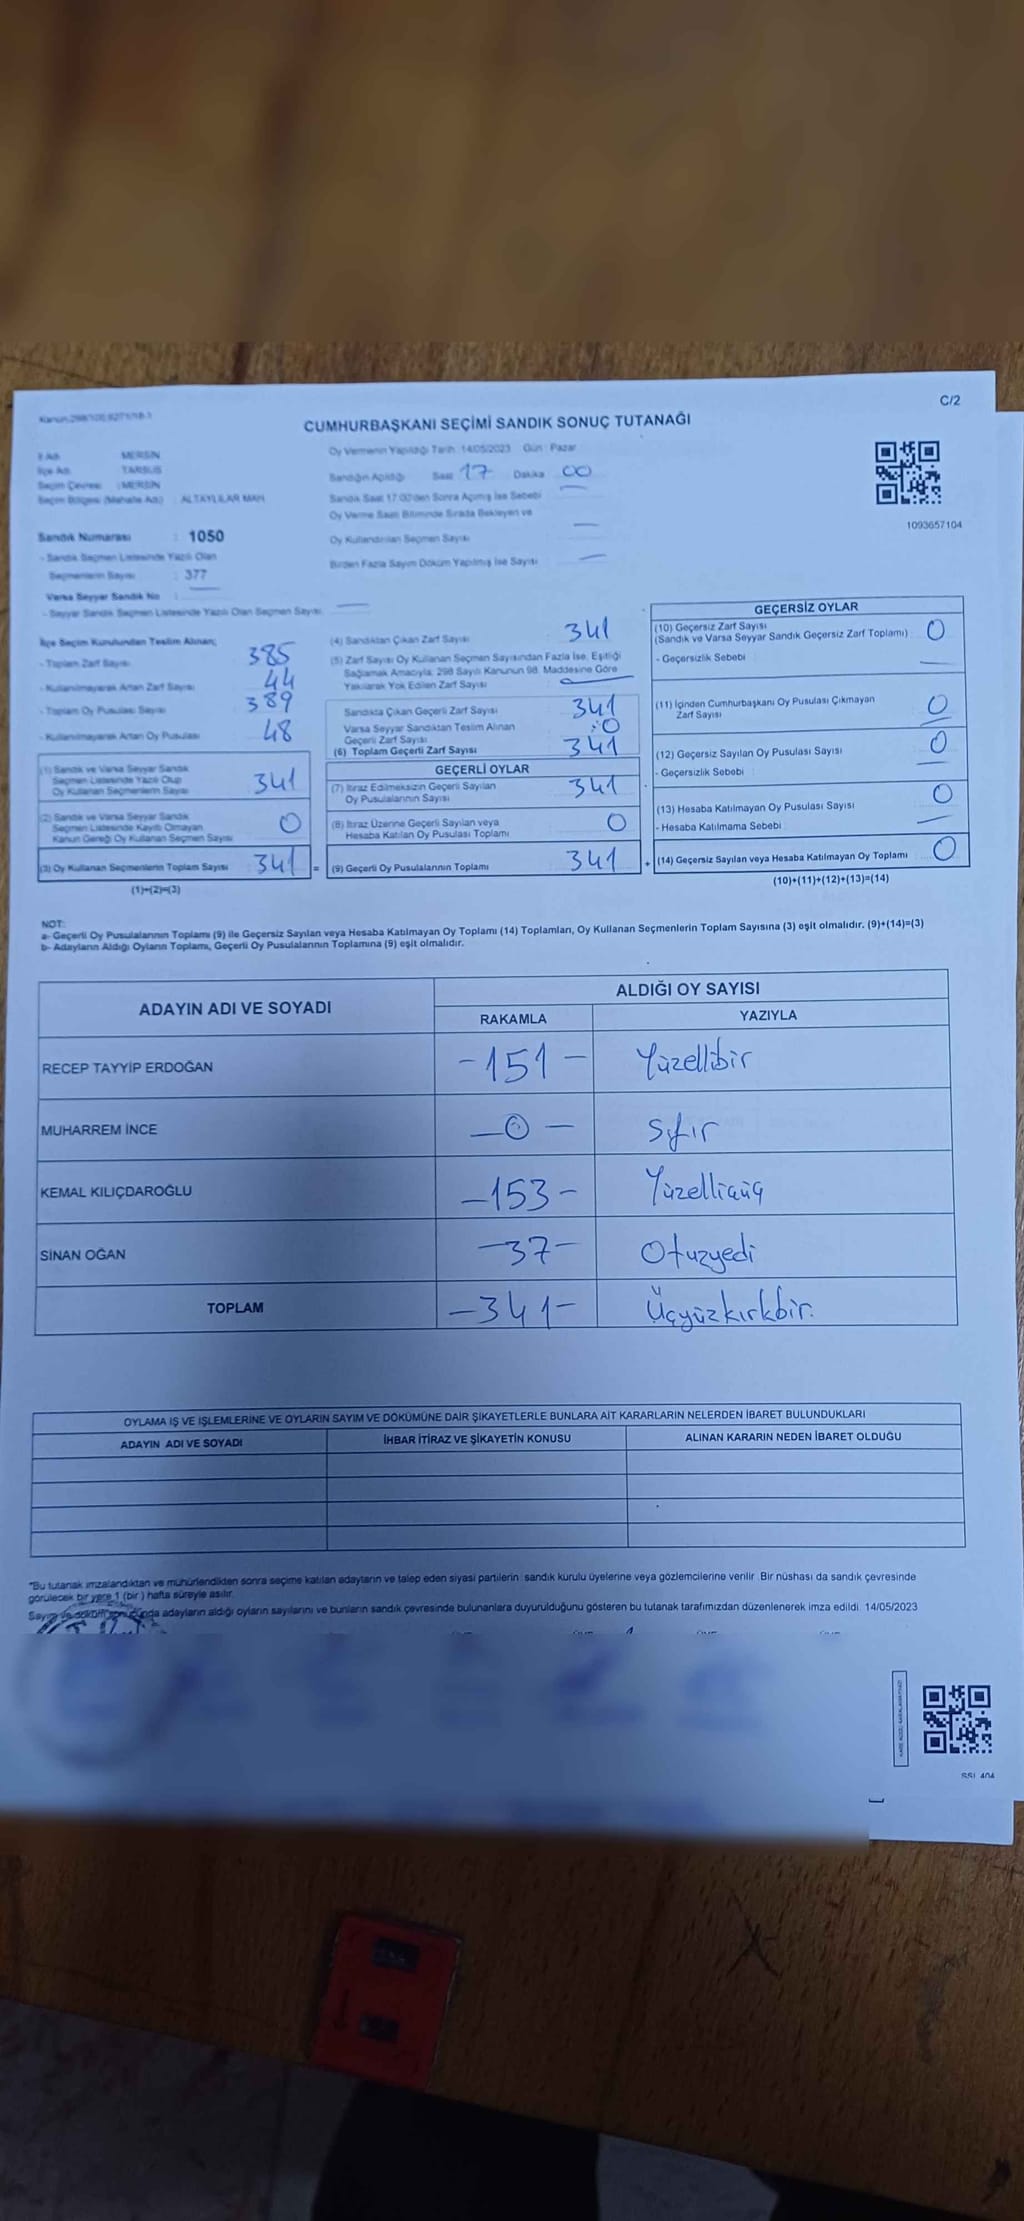 C/2
CUMHURBAŞKANI SEÇİMİ SANDIK SONUÇ TUTANAĞI
İl Adı : MERSİN
İlçe Adı : TARSUS
Seçim Çevresi : MERSİN
Seçim Bölgesi (Mahalle Adı) : ALTAYLILAR MAH.
Oy Vermenin Yapıldığı Tarih : 14/05/2023 Gün : Pazar
Sandığın Açıldığı Saat 17 Dakika 00
Sandık Saat 17:00'den Sonra Açılmış İse Sebebi —
Oy Verme Saati Bitiminde Sırada Bekleyen ve
Oy Kullandırılan Seçmen Sayısı —
Birden Fazla Sayım Döküm Yapılmış İse Sayısı —
1093657104
Sandık Numarası : 1050
- Sandık Seçmen Listesinde Yazılı Olan
Seçmenlerin Sayısı : 377
Varsa Seyyar Sandık No : —
- Seyyar Sandık Seçmen Listesinde Yazılı Olan Seçmen Sayısı: —
İlçe Seçim Kurulundan Teslim Alınan;
- Toplam Zarf Sayısı 385
- Kullanılmayarak Artan Zarf Sayısı 44
- Toplam Oy Pusulası Sayısı 389
- Kullanılmayarak Artan Oy Pusulası 48
(1) Sandık ve Varsa Seyyar Sandık
Seçmen Listesinde Yazılı Olup
Oy Kullanan Seçmenlerin Sayısı 341
(2) Sandık ve Varsa Seyyar Sandık
Seçmen Listesinde Kayıtlı Olmayan
Kanun Gereği Oy Kullanan Seçmen Sayısı 0
(3) Oy Kullanan Seçmenlerin Toplam Sayısı 341 =
(1)+(2)=(3)
(4) Sandıktan Çıkan Zarf Sayısı 341
(5) Zarf Sayısı Oy Kullanan Seçmen Sayısından Fazla İse, Eşitliği
Sağlamak Amacıyla, 298 Sayılı Kanunun 98. Maddesine Göre
Yakılarak Yok Edilen Zarf Sayısı —
Sandıkta Çıkan Geçerli Zarf Sayısı 341
Varsa Seyyar Sandıktan Teslim Alınan
Geçerli Zarf Sayısı : 0
(6) Toplam Geçerli Zarf Sayısı 341
GEÇERLİ OYLAR
(7) İtiraz Edilmeksizin Geçerli Sayılan
Oy Pusulalarının Sayısı 341
(8) İtiraz Üzerine Geçerli Sayılan veya
Hesaba Katılan Oy Pusulası Toplamı 0
(9) Geçerli Oy Pusulalarının Toplamı 341 +
GEÇERSİZ OYLAR
(10) Geçersiz Zarf Sayısı
(Sandık ve Varsa Seyyar Sandık Geçersiz Zarf Toplamı) 0
- Geçersizlik Sebebi —
(11) İçinden Cumhurbaşkanı Oy Pusulası Çıkmayan
Zarf Sayısı 0
(12) Geçersiz Sayılan Oy Pusulası Sayısı 0
- Geçersizlik Sebebi : —
(13) Hesaba Katılmayan Oy Pusulası Sayısı 0
- Hesaba Katılmama Sebebi : —
(14) Geçersiz Sayılan veya Hesaba Katılmayan Oy Toplamı 0
(10)+(11)+(12)+(13)=(14)
NOT:
a- Geçerli Oy Pusulalarının Toplamı (9) ile Geçersiz Sayılan veya Hesaba Katılmayan Oy Toplamı (14) Toplamları, Oy Kullanan Seçmenlerin Toplam Sayısına (3) eşit olmalıdır. (9)+(14)=(3)
b- Adayların Aldığı Oyların Toplamı, Geçerli Oy Pusulalarının Toplamına (9) eşit olmalıdır.
ADAYIN ADI VE SOYADI
ALDIĞI OY SAYISI
RAKAMLA YAZIYLA
RECEP TAYYİP ERDOĞAN -151- Yüzellibir
MUHARREM İNCE -0- Sıfır
KEMAL KILIÇDAROĞLU -153- Yüzelliüç
SİNAN OĞAN -37- Otuzyedi
TOPLAM -341- Üçyüzkırkbir.
OYLAMA İŞ VE İŞLEMLERİNE VE OYLARIN SAYIM VE DÖKÜMÜNE DAİR ŞİKAYETLERLE BUNLARA AİT KARARLARIN NELERDEN İBARET BULUNDUKLARI
ADAYIN ADI VE SOYADI İHBAR İTİRAZ VE ŞİKAYETİN KONUSU ALINAN KARARIN NEDEN İBARET OLDUĞU
*Bu tutanak imzalandıktan ve mühürlendikten sonra seçime katılan adayların ve talep eden siyasi partilerin sandık kurulu üyelerine veya gözlemcilerine verilir. Bir nüshası da sandık çevresinde
görülecek bir yere 1 (bir) hafta süreyle asılır.
Sayım ve döküm sonucunda adayların aldığı oyların sayılarını ve bunların sandık çevresinde bulunanlara duyurulduğunu gösteren bu tutanak tarafımızdan düzenlenerek imza edildi. 14/05/2023